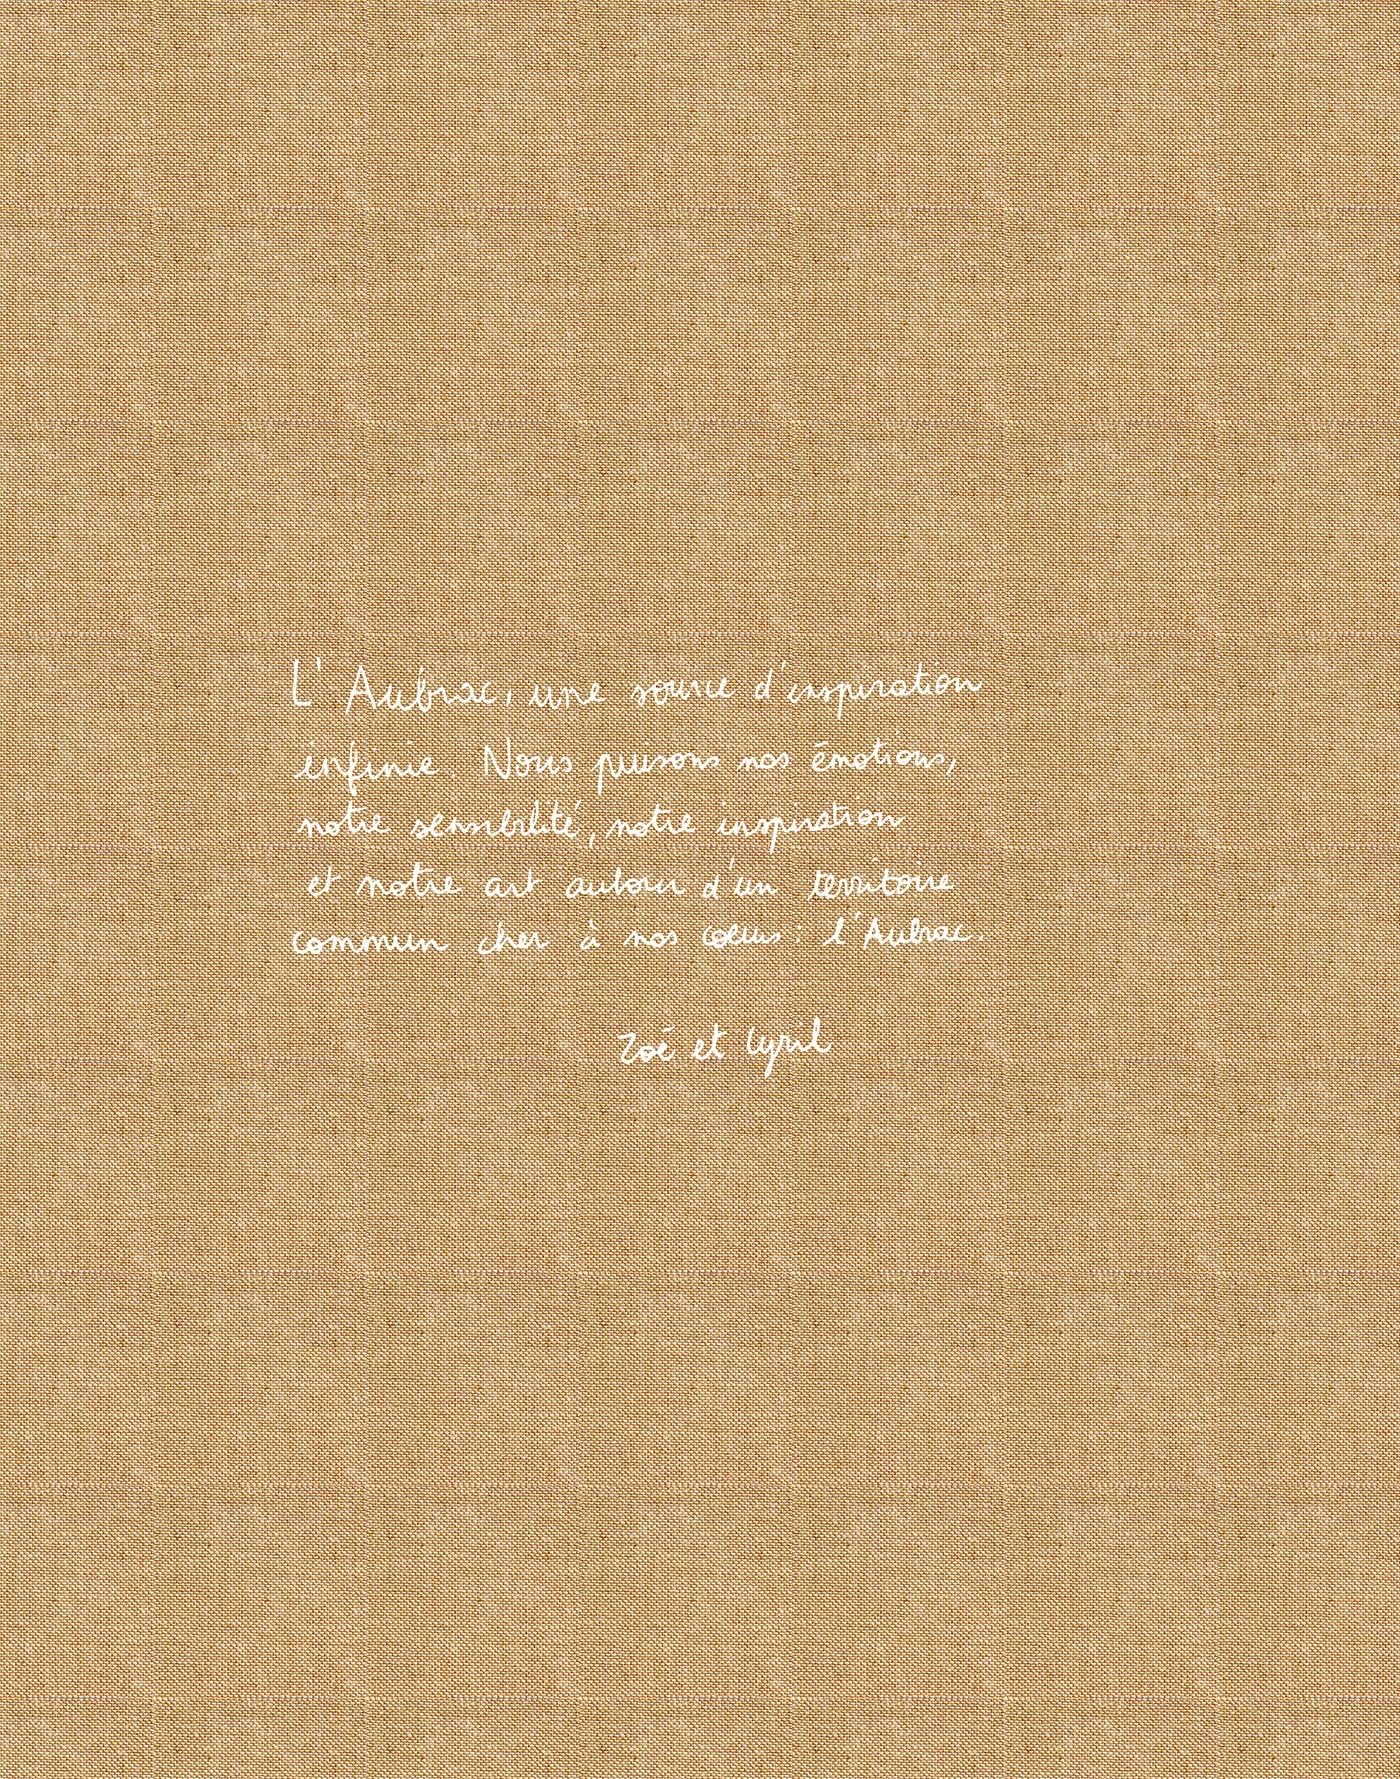 L'Aubrac, une source d'inspiration
infinie. Nous puisons nos émotions,
notre sensibilité, notre inspiration
et notre art autour d'un territoire
commun cher à nos cœurs : l'Aubrac.
Zoé et Cyril